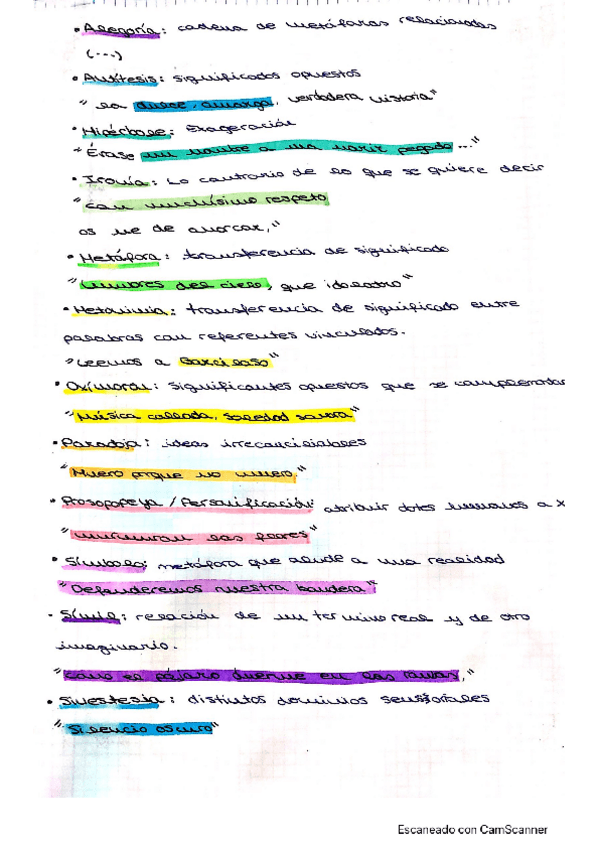 • Alegoría: cadena de metáforas relacionadas
(...)
• Antítesis: significados opuestos
" la dulce, amarga, verdadera historia"
• Hipérbole: Exageración
"Érase un hombre a una nariz pegado..."
• Ironía: Lo contrario de lo que se quiere decir
"con muchísimo respeto
os he de ahorcar,"
• Metáfora: transferencia de significado
"Lumbres del cielo, que idolatro"
• Metonimia: transferencia de significado entre
palabras con referentes vinculados.
"Leemos a Garcilaso"
• Oxímoron: significantes opuestos que se complementan
"Música callada, soledad sonora"
• Paradoja: ideas irreconciliables
"Muero porque no muero."
• Prosopopeya / Personificación: atribuir dotes humanos a x
"murmuran las flores"
• Símbolo: metáfora que alude a una realidad
"Defenderemos nuestra bandera"
• Símil: relación de un término real y de otro
imaginario.
"como el pájaro duerme en las ramas,"
• Sinestesia: distintos dominios sensoriales
"Silencio oscuro"
Escaneado con CamScanner